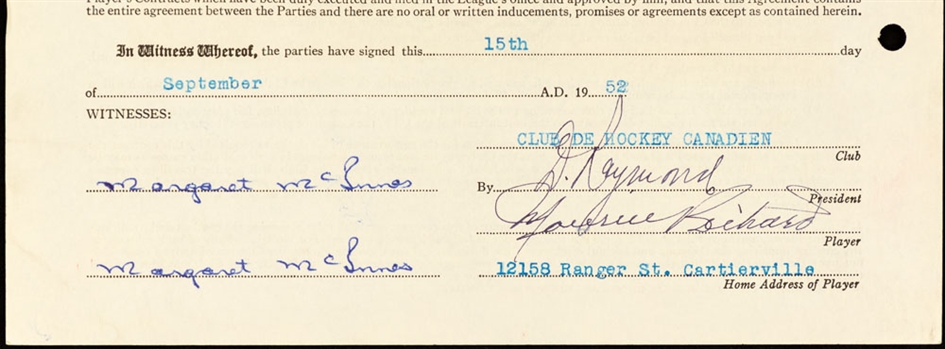 Player's Contracts which have been duly executed and filed in the League's office and approved by him, and that this Agreement contains
the entire agreement between the Parties and there are no oral or written inducements, promises or agreements except as contained herein.
In Witness Whereof, the parties have signed this 15th day
of September A.D. 19 52
WITNESSES:
CLUB DE HOCKEY CANADIEN
Club
Margaret McInnes By D. Raymond
President
Maurice Richard
Player
Margaret McInnes 12158 Ranger St. Cartierville
Home Address of Player